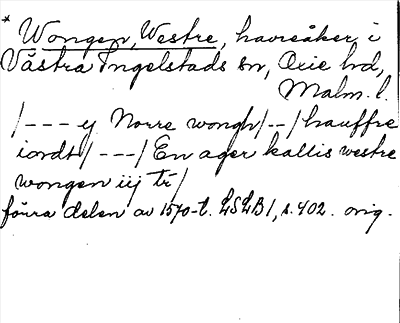 * Wongen, Westre, havreåker i
Västra Ingelstads sn, Oxie hd,
Malm. l.
/--- ij Norre wongh/--/hauffre
iordt/---/En ager kallis westre
wongen iij tr/
förra delen av 1570-t. LSLB1, s. 402. orig.